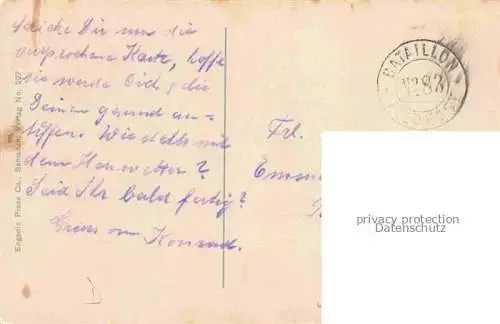 schicke Dir nun die
versprochene Karte, hoffe
sie werde Dich & die
Deinen gesund an-
treffen. Wie steht's mit
dem Heuwetter?
Seid Ihr bald fertig?
Gruss von Konrad.
Engadin Press Co., Samaden, Verlag No.
BATAILLON
No 83
Frl.
privacy protection
Datenschutz
D